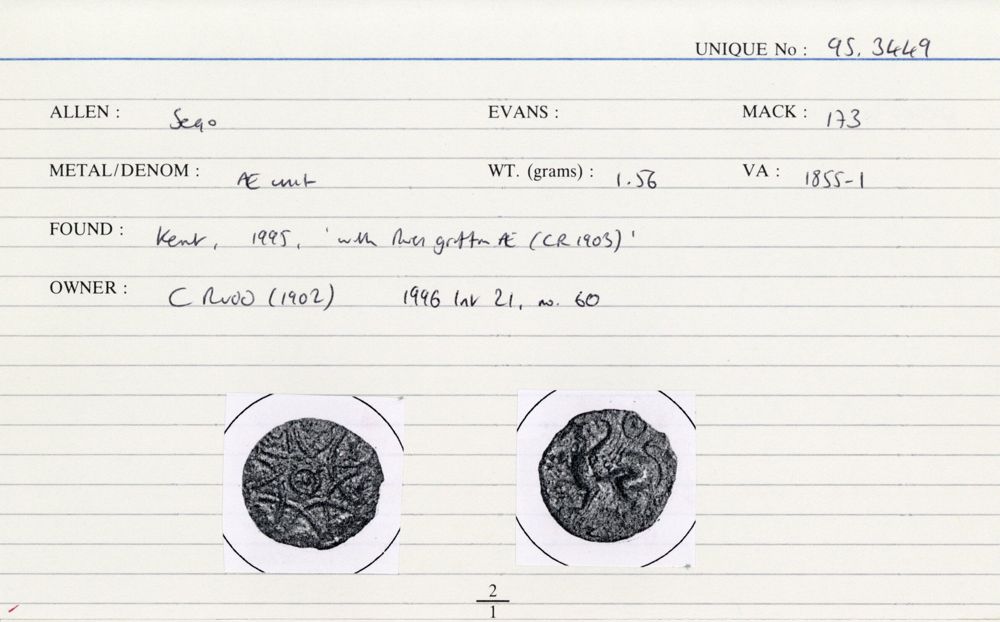 UNIQUE No : 95. 3449
ALLEN : Sego EVANS : MACK : 173
METAL/DENOM : Æ unit WT. (grams) : 1.56 VA : 1855-1
FOUND : Kent, 1995, 'with Æ (CR 1903)'
OWNER : C RUDD (1902) 1996 21, no. 60
2
1